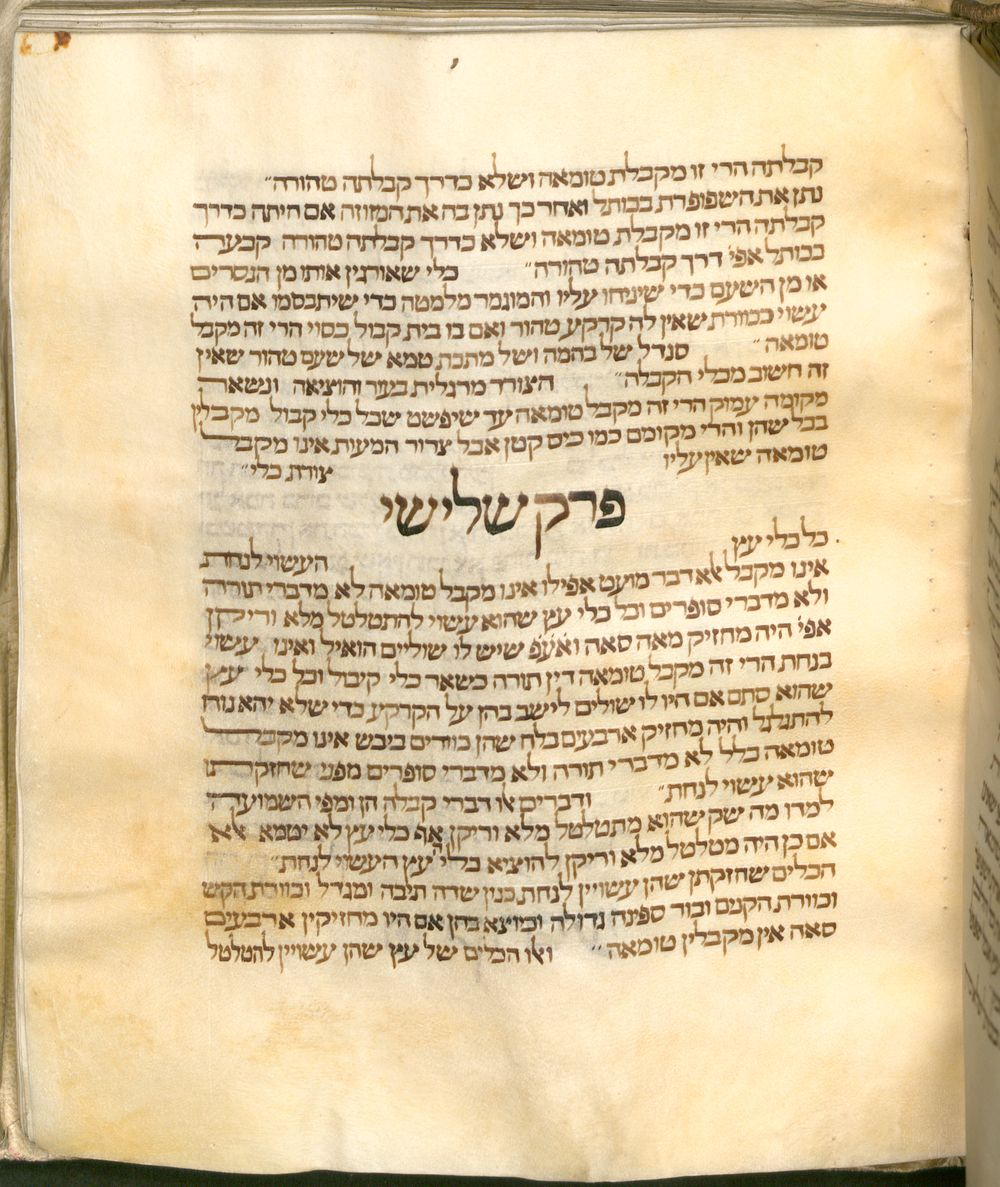 קבלתה הרי זו מקבלת טומאה ושלא כדרך קבלתה טהורה״
נתן את השפופרת בכותל ואחר כך נתן בה את המזוזה אם היתה כדרך
קבלתה הרי זו מקבלת טומאה ושלא כדרך קבלתה טהורה קבעה
בכותל אפי׳ דרך קבלתה טהורה״ כלי שאורגין אותו מן הנסרים
או מן השעם כדי שיניחו עליו והמוגמר מלמטה כדי שיתבסמו אם היה
עשוי ככוורת שאין לה קרקע טהור ואם בו בית קבול כסוי הרי זה מקבל
טומאה״ סנדל של בהמה ושל מתכת טמא של שעם טהור שאין
זה חשוב מכלי הקבלה״ הצורר מרגלית בעור והוציאה ונשאר
מקומה עמוק הרי זה מקבל טומאה עד שיפשט שכל כלי קבול מקבלין
בכל שהן והרי מקומם כמו כיס קטן אבל צרור המעות אינו מקבל
טומאה שאין עליו
צורת כלי״
פרק שלישי
כל כלי עץ
העשוי לנחת
אינו מקבל אלא דבר מועט אפילו אינו מקבל טומאה לא מדברי תורה
ולא מדברי סופרים וכל כלי עץ שהוא עשוי להתטלטל מלא וריקן
אפי׳ היה מחזיק מאה סאה ואעפ שיש לו שוליים הואיל ואינו עשוי
בנחת הרי זה מקבל טומאה דין תורה כשאר כלי קיבול וכל כלי עץ
שהוא סתם אם היו לו שולים לישב בהן על הקרקע כדי שלא יהא נוח
להתגלגל והיה מחזיק ארבעים בלח שהן כוריים ביבש אינו מקבל
טומאה כלל לא מדברי תורה ולא מדברי סופרים מפני שחזקתו
שהוא עשוי לנחת״ ודברים אלו דברי קבלה הן ומפי השמועה
למדו מה שק שהוא מתטלטל מלא וריקן אף כלי עץ לא יטמא אלא
אם כן היה מטלטל מלא וריקן להוציא כלי עץ העשוי לנחת״
הכלים שחזקתן שהן עשויין לנחת כגון שדה תיבה ומגדל וכוורת הקש
וכוורת הקנים ובור ספינה גדולה וכיוצא בהן אם היו מחזיקין ארבעים
סאה אין מקבלין טומאה״ ואלו הכלים של עץ שהן עשויין להטלטל